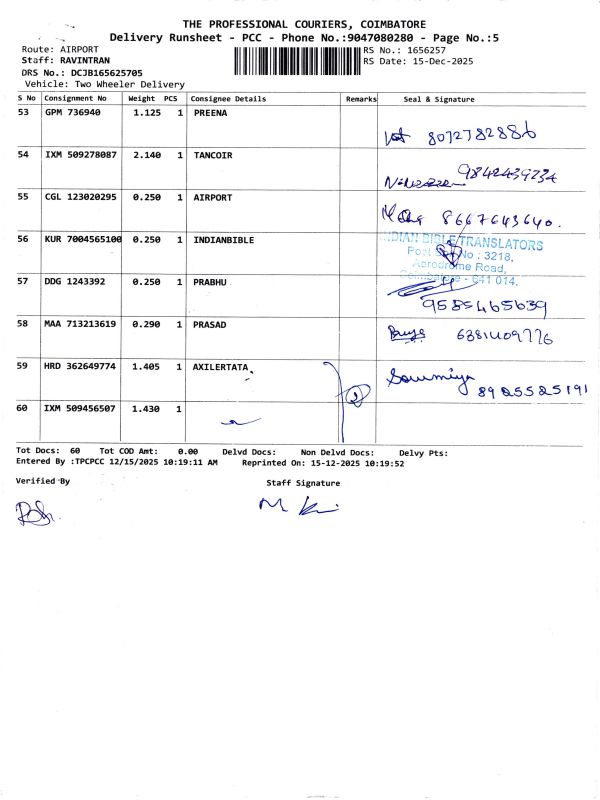 THE PROFESSIONAL COURIERS, COIMBATORE
Delivery Runsheet - PCC - Phone No.:9047080280 - Page No.:5
Route: AIRPORT
RS No.: 1656257
Staff: RAVINTRAN
RS Date: 15-Dec-2025
DRS No.: DCJB165625705
Vehicle: Two Wheeler Delivery
S No Consignment No Weight PCS Consignee Details Remarks Seal & Signature
53 GPM 736940 1.125 1 PREENA
8072782886
54 IXM 509278087 2.140 1 TANCOIR
9842439234
55 CGL 123020295 0.250 1 AIRPORT
8667643640.
56 KUR 7004565100 0.250 1 INDIANBIBLE
INDIAN BIBLE TRANSLATORS
Post No : 3218,
Aerodrome Road,
Coimbatore - 641 014.
57 DDG 1243392 0.250 1 PRABHU
9585465639
58 MAA 713213619 0.290 1 PRASAD
6381409776
59 HRD 362649774 1.405 1 AXILERTATA
2
Soumiya 8925525191
60 IXM 509456507 1.430 1
Tot Docs: 60 Tot COD Amt: 0.00 Delvd Docs: Non Delvd Docs: Delvy Pts:
Entered By :TPCPCC 12/15/2025 10:19:11 AM Reprinted On: 15-12-2025 10:19:52
Verified By Staff Signature